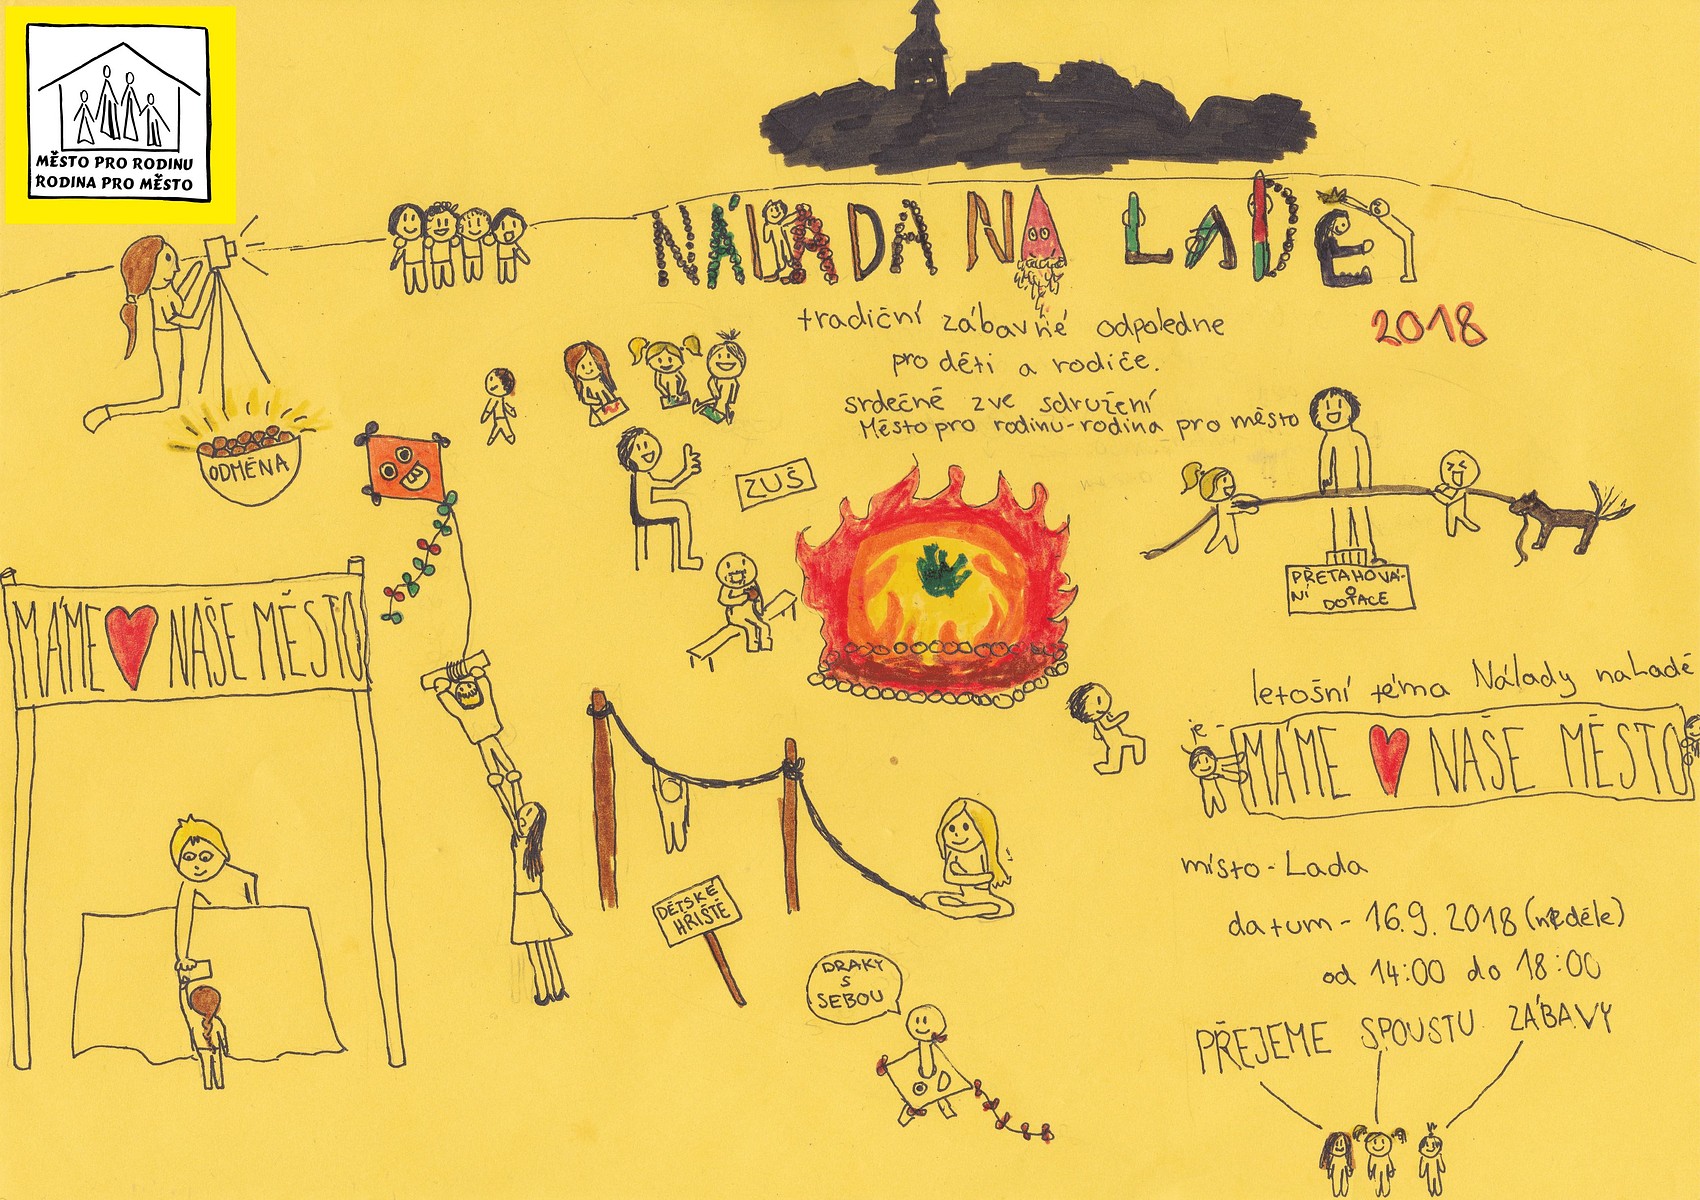 MĚSTO PRO RODINU
RODINA PRO MĚSTO
NÁLADA NA LADĚ
2018
tradiční zábavné odpoledne
pro děti a rodiče.
srdečně zve sdružení
Město pro rodinu-rodina pro město
ODMĚNA
ZUŠ
PŘETAHOVÁ-
NÍ O
DOTACE
MÁME NAŠE MĚSTO
letošní téma Nálady naLadě
je
MÁME NAŠE MĚSTO
místo-Lada
datum-16.9.2018(neděle)
od 14:00 do 18:00
DĚTSKÉ
HŘIŠTĚ
DRAKY
S
SEBOU
PŘEJEME SPOUSTU ZÁBAVY